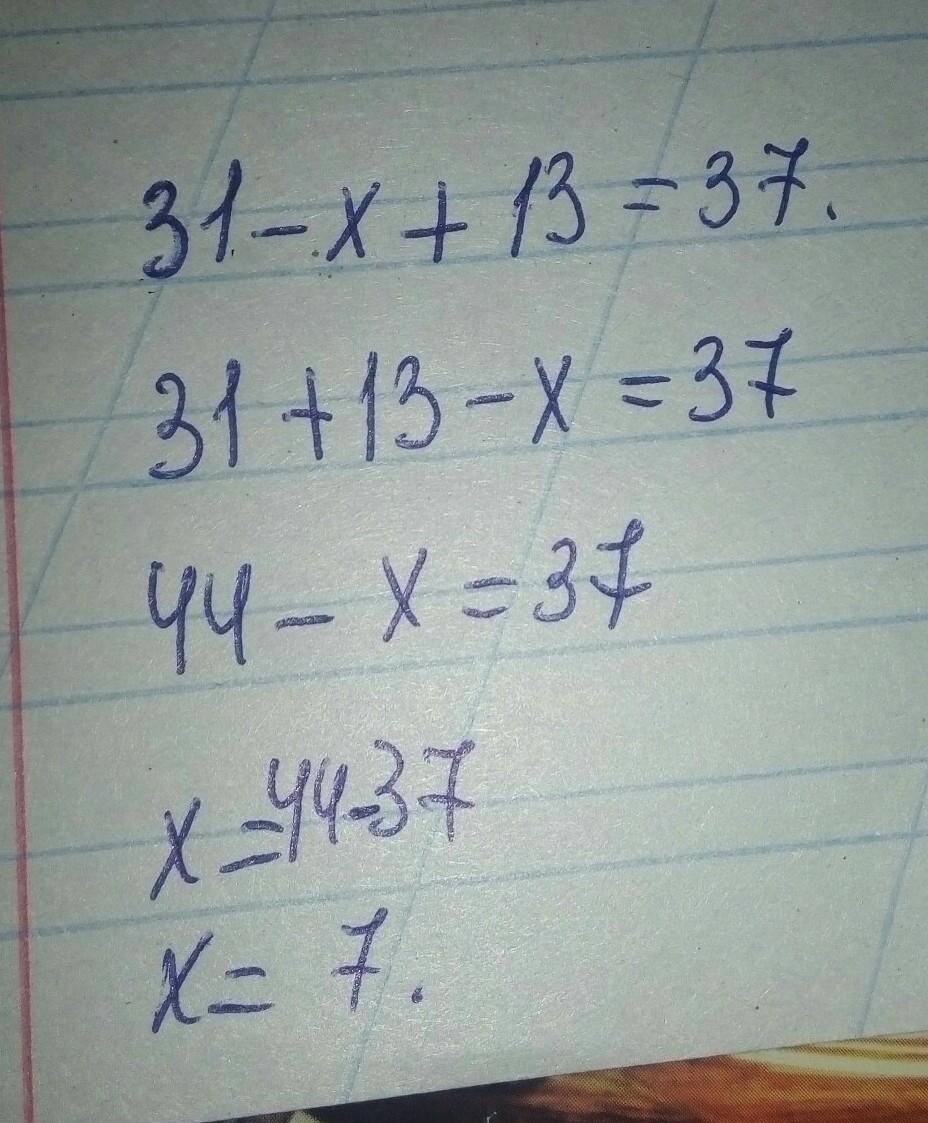 31-x+13=37.
31+13-x=37
44-x=37
x=44-37
x=7.